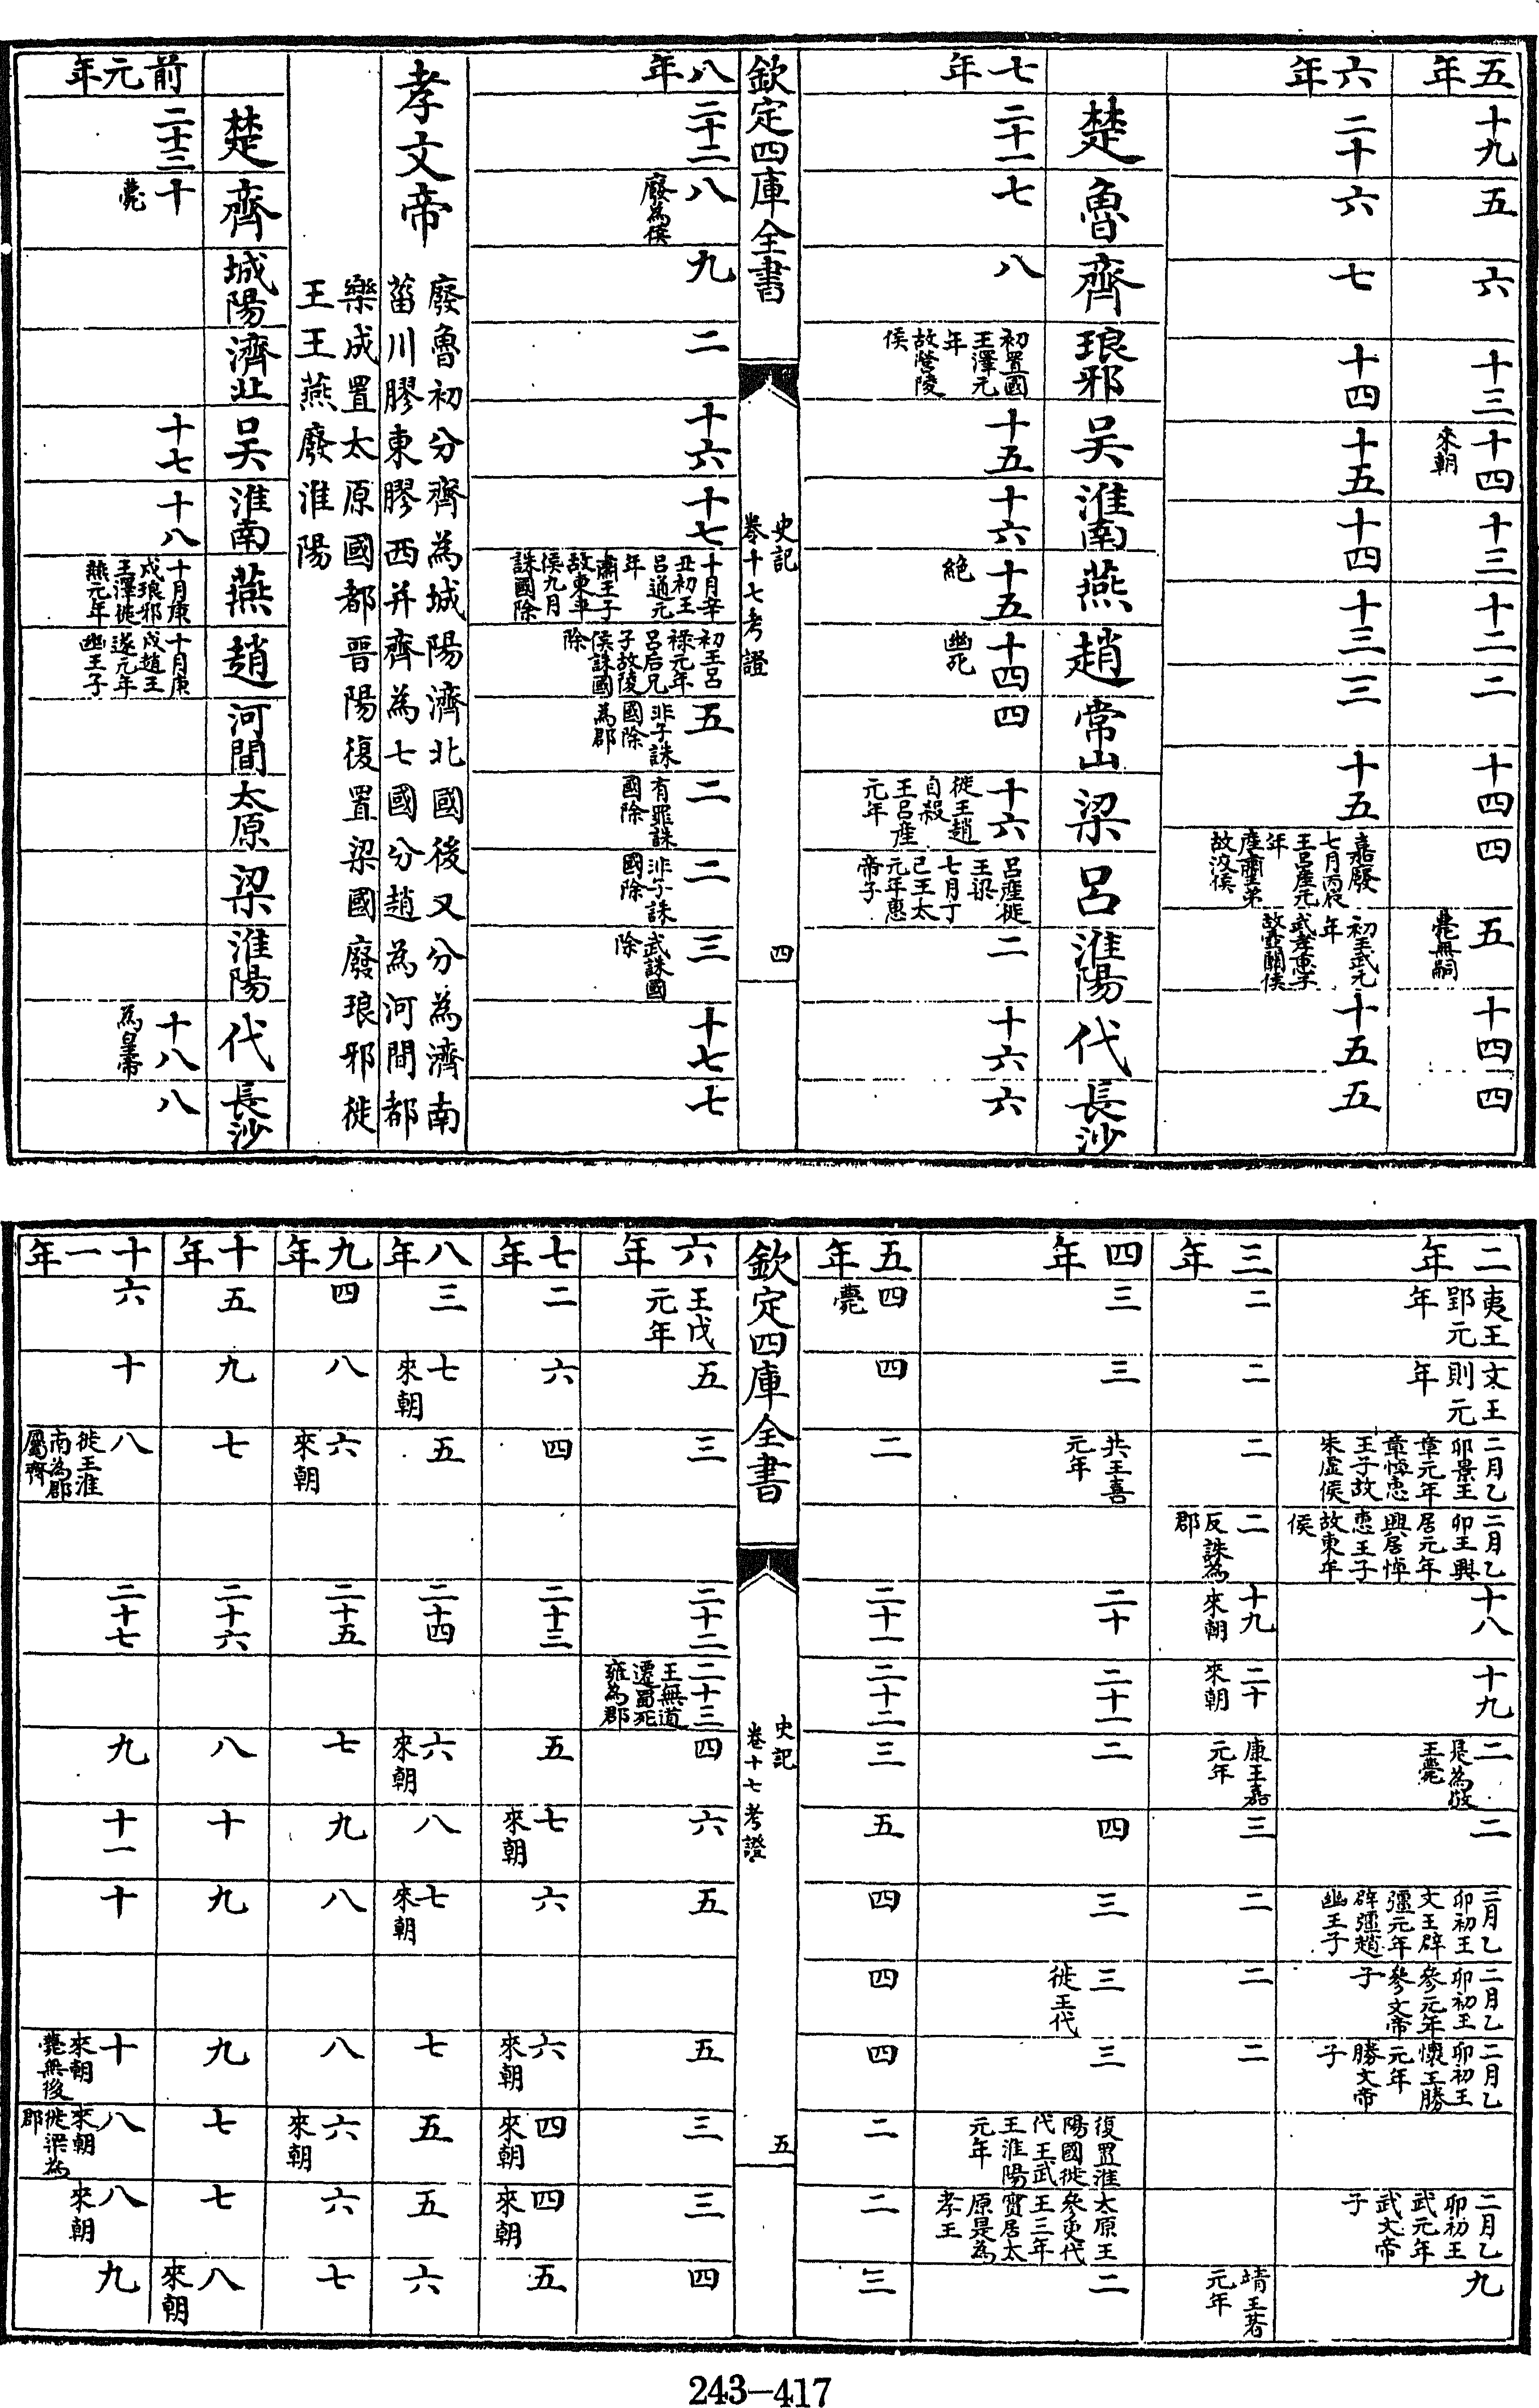 五年
十九
五
六
十三
十四 來朝
十三
十二
二
十四
四
五 薨無嗣
十四
四
六年
二十
六
七
十四
十五
十四
十三
三
十五
嘉廢七月丙辰王呂產元年產肅王弟故洨侯
初王武元年武孝惠子故壺關侯
十五
五
楚
魯
齊
琅邪
吳
淮南
燕
趙
常山
梁
呂
淮陽
代
長沙
七年
二十一
七
八
初置國王澤元年故營陵侯
十五
十六
十五 絕
十四 幽死
四
十六 徙王趙自殺王呂產元年
呂產徙王梁七月丁巳王太元年惠帝子
二
十六
六
欽定四庫全書
史記
卷十七考證
四
八年
二十二
八 廢為侯
九
二
十六
十七
十月辛丑初王呂通元年肅王子故東平侯九月誅國除
初王呂祿元年呂后兄子故陵侯誅國除
五 非子誅國除為郡
二 有罪誅國除
二 非子誅國除
三 武誅國除
十七
七
孝文帝
廢魯初分齊為城陽濟北國後又分為濟南
菑川膠東膠西并齊為七國分趙為河間都
樂成置太原國都晋陽復置梁國廢琅邪徙
王王燕廢淮陽
楚
齊
城陽
濟北
吳
淮南
燕
趙
河間
太原
梁
淮陽
代
長沙
前元年
二十三
十 薨
十七
十八
十月庚戌琅邪王澤徙燕元年
十月庚戌趙王遂元年幽王子
十八 為皇帝
八
二年
夷王郢元年
文王則元年
二月乙卯景王章元年章悼惠王子故朱虛侯
二月乙卯王興居元年興居悼惠王子故東牟侯
十八
十九
二 是為敬王薨
二
二月乙卯初王文王辟彊元年辟彊趙幽王子
二月乙卯初王參元年參文帝子
二月乙卯初王懷王勝元年勝文帝子
二月乙卯初王武元年武文帝子
九
三年
二
二
二
二 反誅為郡
十九 來朝
二十 來朝
康王嘉元年
三
二
二
二
靖王著元年
四年
三
三
共王喜元年
二十
二十一
二
四
三
三 徙王代
三
復置淮陽國徙代王武王淮陽元年
太原王參更代王三年實居太原是為孝王
二
五年
四 薨
四
二
二十一
二十二
三
五
四
四
四
二
二
三
欽定四庫全書
史記
卷十七考證
五
六年
王戊元年
五
三
二十二
二十三 王無道遷蜀死雍為郡
四
六
五
五
三
三
四
七年
二
六
四
二十三
五
七 來朝
六
六 來朝
四 來朝
四 來朝
五
八年
三
七 來朝
五
二十四
六 來朝
八
七 來朝
七
五
五
六
九年
四
八
六 來朝
二十五
七
九
八
八
六 來朝
六
七
十年
五
九
七
二十六
八
十
九
九
七
七
八 來朝
十一年
六
十
八 徙王淮南為郡屬齊
二十七
九
十一
十
十 來朝薨無後
八 來朝徙梁為郡
八 來朝
九
243-417